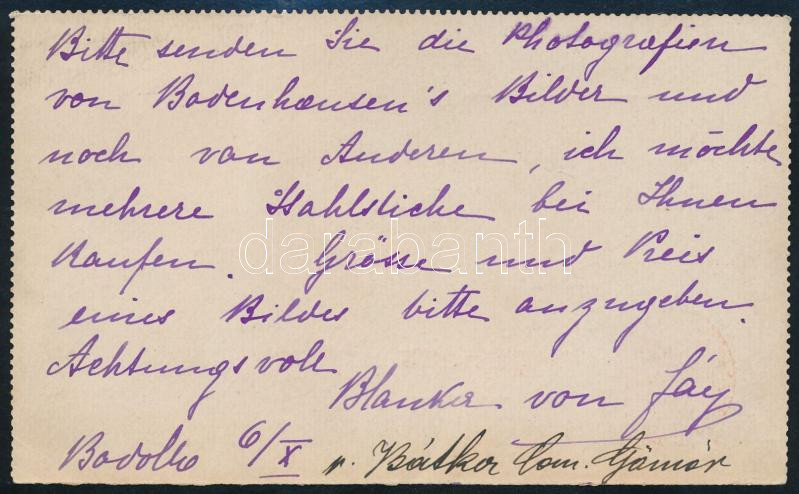 Bitte senden Sie die Photografien
von Bodenhausen's Bilder und
noch von Anderen, ich möchte
mehrere Stahlstiche bei Ihnen
kaufen. Grösse und Preis
eines Bildes bitte anzugeben.
Achtungsvoll
Blanka von Fáy
6/X
p. Bátka Com. Gömör
darabanth